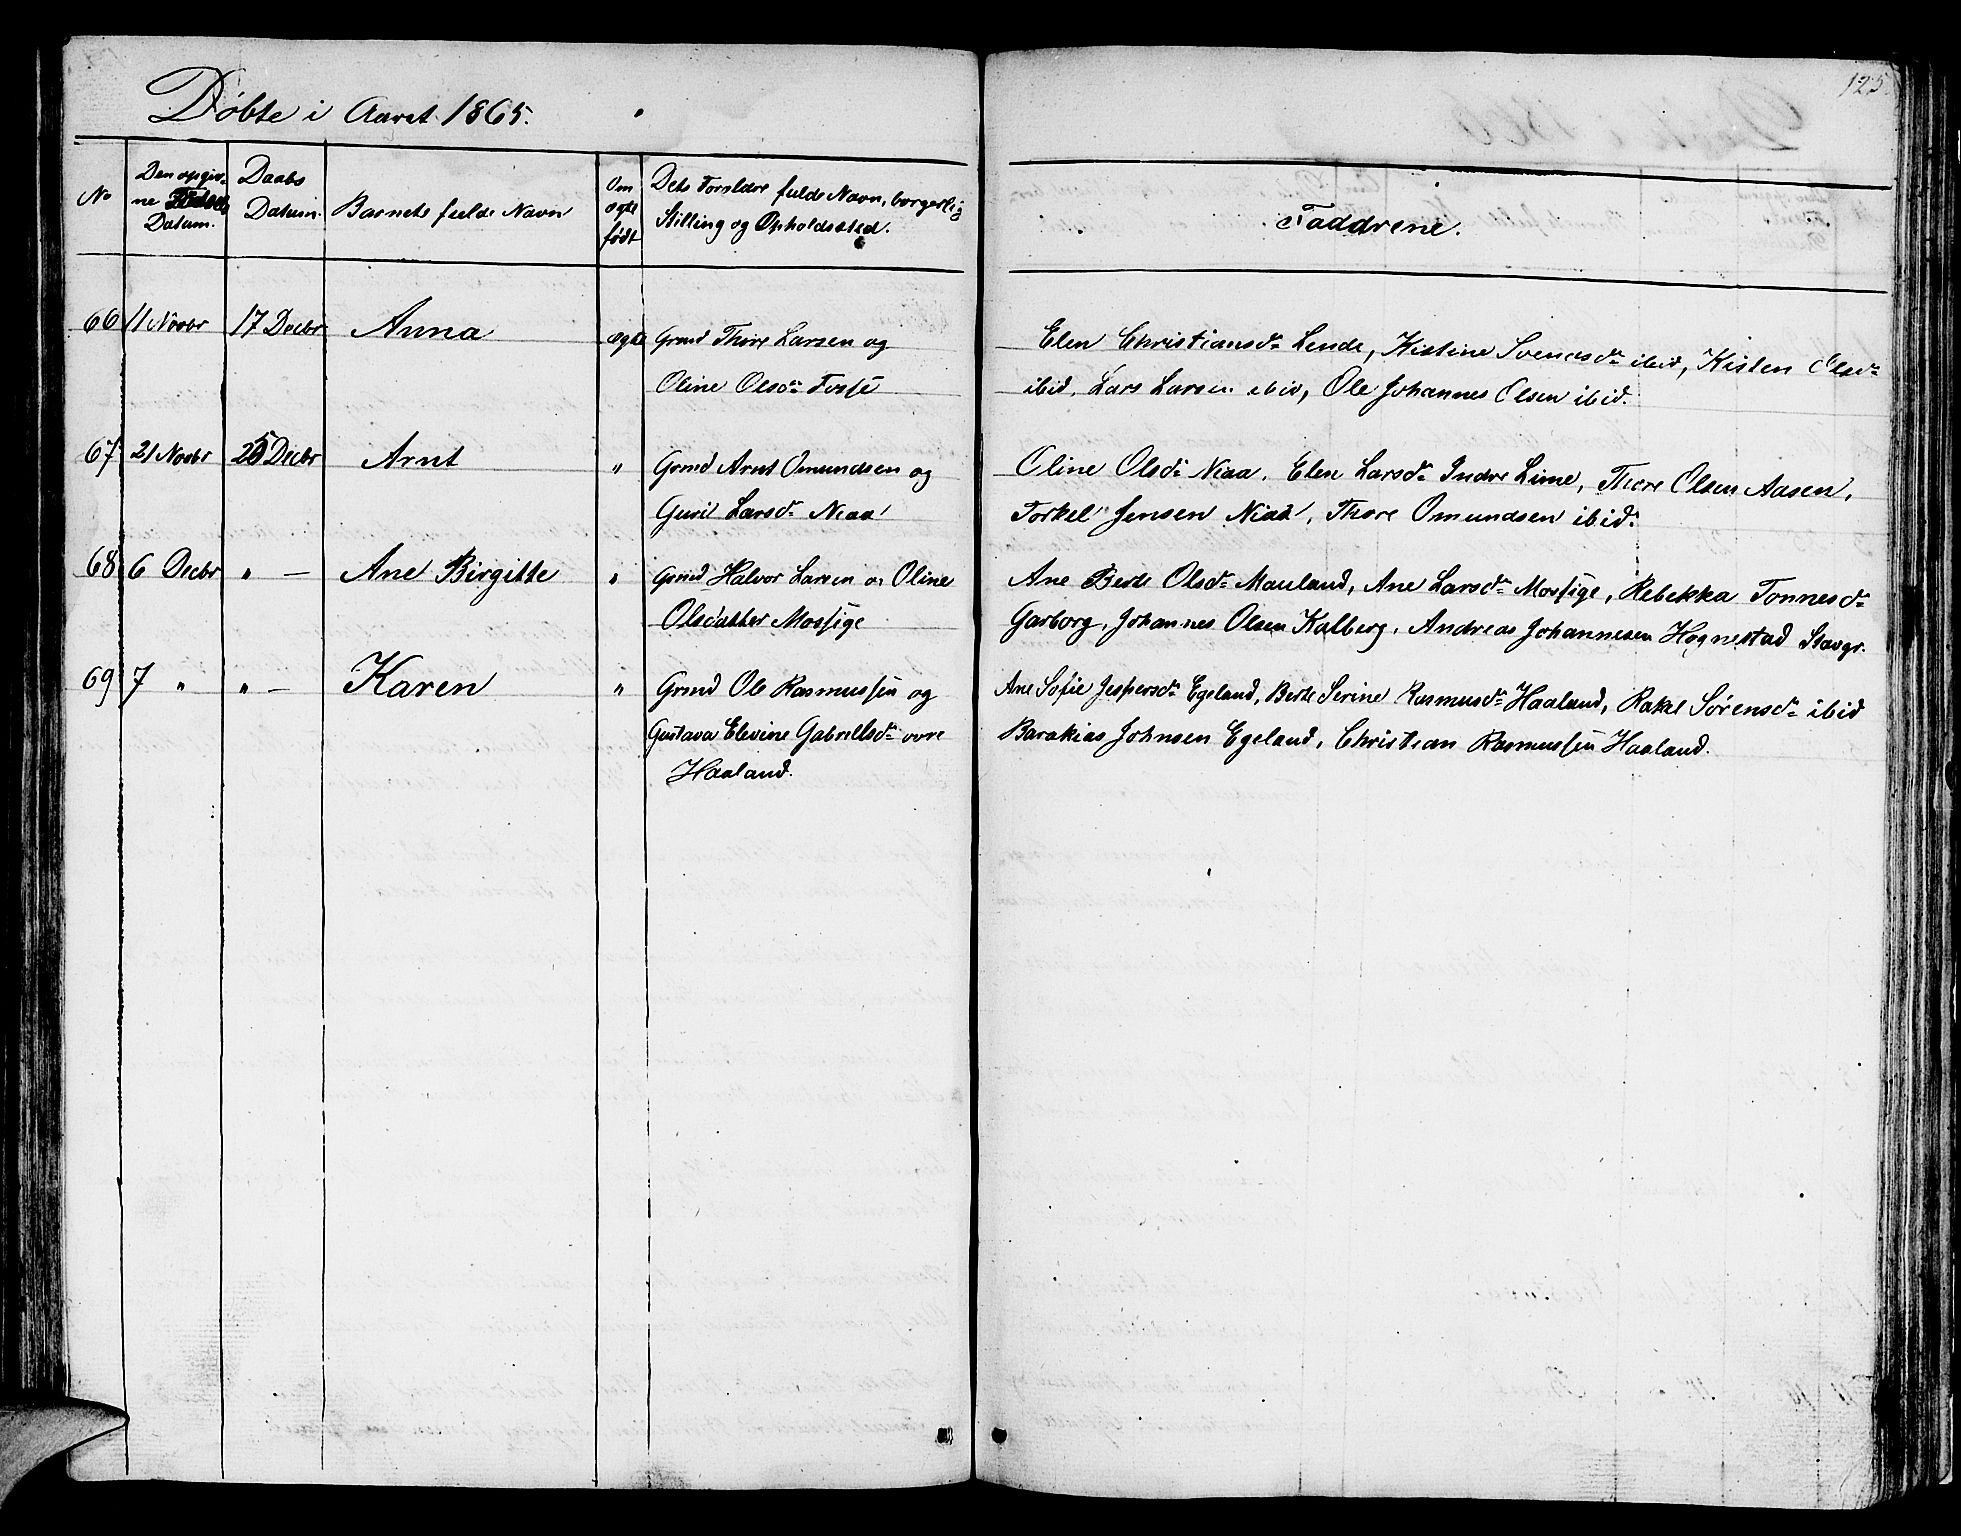 125
Døbte i Aaret 1865.
No
Den opgiv-
ne Fødsels
Datum.
Daabs
Datum.
Barnets fulde Navn
Om
ægte
født
Dets Forældre fulde Navn, borgerlig
Stilling og Opholdssted.
Faddrene.
66 11 Novbr 17 Decbr Anna ægte Grmd Thore Larsen og
Oline Olsdr Fosse
Elen Christiansdr Lende, Kistine Svendsdr ibid, Kisten Olsdr
ibid, Lars Larsen ibid, Ole Johannes Olsen ibid.
67 21 Novbr 25 Decbr Arnt " Grmd Arnt Omundsen og
Guri Larsdr Niaa
Oline Olsdr Niaa, Elen Larsdr Indre Lime, Thore Olsen Aasen,
Torkel Jensen Niaa, Thore Omundsen ibid.
68 6 Decbr " — Ane Birgitte " Grmd Halvor Larsen og Oline
Olsdatter Mossige
Ane Berte Olsdr Mauland, Ane Larsdr Mossige, Rebekka Tonnesdr
Garborg, Johannes Olsen Kalberg, Andreas Johannesen Hognestad Stavgr.
69 7 " " — Karen " Grmd Ole Rasmussen og
Gustava Elevine Gabrielsdr øvre
Haaland.
Ane Sofie Jespersdr Egeland, Berte Serine Rasmusdr Haaland, Rakel Sørensdr ibid
Barakias Johnsen Egeland, Christian Rasmussen Haaland.